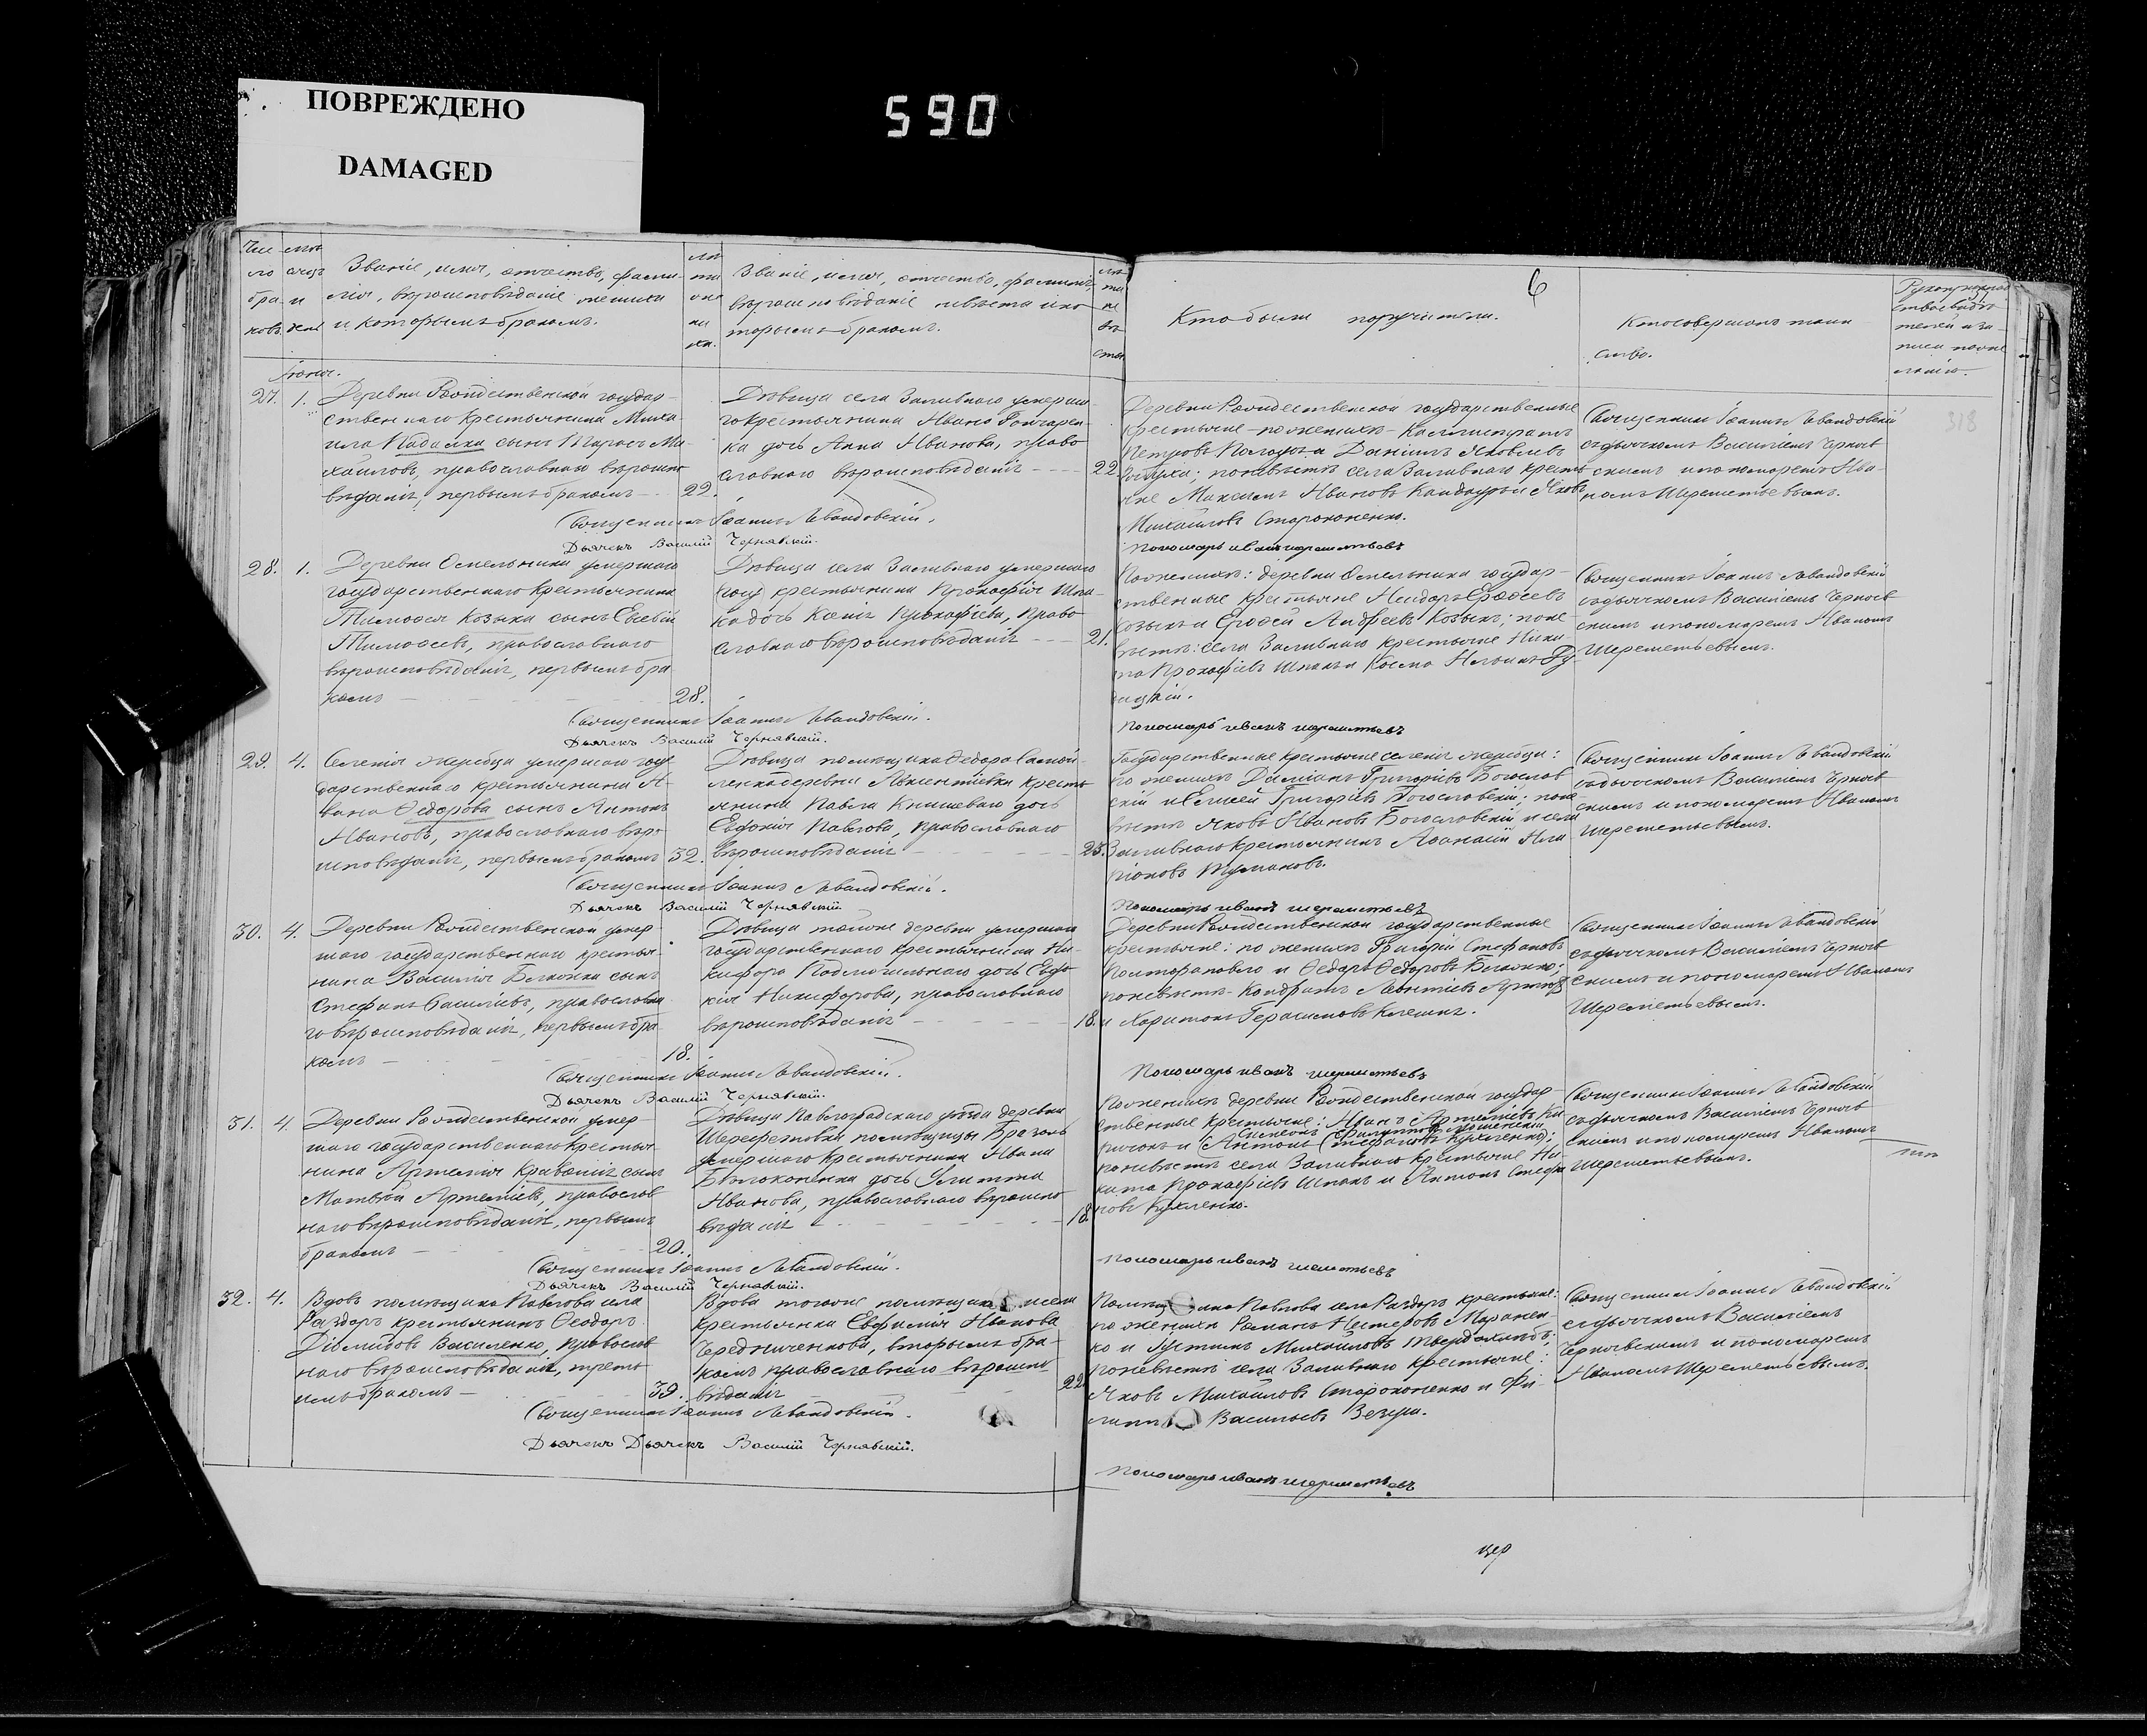 ПОВРЕЖДЕНО
DAMAGED
590
6
318
Званіе, имя, отчество, фами-
лія, вѣроисповѣданіе жениха
и которымъ бракомъ.
Званіе, имя, отчество, фамилія,
вѣроисповѣданіе невѣсты и ко-
торымъ бракомъ.
Кто были поручители.
Кто совершалъ таин-
ство.
27. 1. Деревни Рождественской государ-
ственнаго крестьянина Миха-
ила сынъ Тарасъ Ми-
хайловъ, православнаго вѣроиспо-
вѣданія, первымъ бракомъ 22.
Дѣвица села Заливнаго умерша-
го крестьянина Ивана Гончарен-
ка дочь Анна Иванова, право
славнаго вѣроисповѣданія 22.
Деревни Рождественской государственные
крестьяне по женихѣ
Петровъ и Даніилъ Яковлевъ
по невѣстѣ села Заливнаго кресть
яне Максимъ Ивановъ и Яковъ
Михайловъ Староконенко.
Священникъ Іоаннъ Левандовскій
съ дьячкомъ Василіемъ Черняв
скимъ и пономаремъ Ива-
номъ Шереметьевымъ.
Священникъ Іоаннъ Левандовскій.
Дьячекъ Василій Чернявскій.
Пономарь иванъ шереметьевъ
28. 1. Деревни Омельника умершаго
государственнаго крестьянина
Тимофея Козыки сынъ Евсевій
Тимофеевъ, православнаго
вѣроисповѣданія, первымъ бра
комъ 28.
Дѣвица села Заливнаго умершаго
госуд крестьянина Прокофія Шпа-
ка дочь Ксенія Прокофіева, право
славнаго вѣроисповѣданія 21.
По женихѣ: деревни Омельника государ-
ственные крестьяне
Козыка и Андреевъ Козыка; по не
вѣстѣ: села Заливнаго крестьяне Ники-
та Прокофіевъ Шпакъ и Косма
Священникъ Іоаннъ Левандовскій
съ дьячкомъ Василіемъ Черняв
скимъ и пономаремъ Иваномъ
Шереметьевымъ.
Священникъ Іоаннъ Левандовскій.
Дьячекъ Василій Чернявскій.
Пономарь иванъ шереметьевъ
29. 4. Селенія Жеребца умершаго госу
дарственнаго крестьянина И-
вана Ѳедорова сынъ Антонъ
Ивановъ, православнаго вѣро
исповѣданія, первымъ бракомъ 32.
Дѣвица помѣщика Ѳедора
деревни кресть
янина Павла дочь
Евдокія Павлова, православнаго
вѣроисповѣданія 23.
Государственные крестьяне селенія Жеребца:
по женихѣ Даміанъ Григорьевъ Богослов
скій и Елисей Григорьевъ Богословскій; по не
вѣстѣ Яковъ Ивановъ Богословскій и села
Заливнаго крестьянинъ Афанасій
Тумаковъ.
Священникъ Іоаннъ Левандовскій
съ дьячкомъ Василіемъ Черняв
скимъ и пономаремъ Иваномъ
Шереметьевымъ.
Священникъ Іоаннъ Левандовскій.
Дьячекъ Василій Чернявскій
Пономарь иванъ шереметьевъ
30. 4. Деревни Рождественской умер-
шаго государственнаго крестья-
нина Василія сынъ
Стефанъ Васильевъ, православна
го вѣроисповѣданія, первымъ бра
комъ 18.
Дѣвица тойже деревни умершаго
государственнаго крестьянина Ни-
кифора дочь Евдо
кія Никифорова, православнаго
вѣроисповѣданія 18.
Деревни Рождественской государственные
крестьяне: по женихѣ Григорій Стефановъ
и Ѳедоръ Ѳедоровъ
по невѣстѣ Кондратъ Леонтіевъ
и Харитонъ Герасимовъ
Священникъ Іоаннъ Левандовскій
съ дьячкомъ Василіемъ Черняв
скимъ и пономаремъ Иваномъ
Шереметьевымъ.
Священникъ Іоаннъ Левандовскій.
Дьячекъ Василій Чернявскій.
Пономарь иванъ шереметьевъ
31. 4. Деревни Рождественской умер-
шаго государственнаго крестья-
нина Артемія сынъ
Матвѣй Артеміевъ, православ
наго вѣроисповѣданія, первымъ
бракомъ 20.
Дѣвица Павлоградскаго уѣзда деревни
помѣщицы
умершаго крестьянина Ивана
Бѣлоконенка дочь Улитта
Иванова, православнаго вѣроиспо
вѣданія 18.
По женихѣ деревни Рождественской государ-
ственные крестьяне: Иванъ Артеміевъ
и Антонъ Стефановъ
по невѣстѣ села Заливнаго крестьяне Ни-
кита Прокофіевъ Шпакъ и Антонъ Стефа
новъ
Священникъ Іоаннъ Левандовскій
съ дьячкомъ Василіемъ Черняв
скимъ и пономаремъ Иваномъ
Шереметьевымъ.
Священникъ Іоаннъ Левандовскій.
Дьячекъ Василій Чернявскій.
Пономарь иванъ
32. 4. Вдовъ помѣщика Павлова села
Раздоръ крестьянинъ Ѳеодоръ
Діомидовъ Василенко, православ
наго вѣроисповѣданія, треть
имъ бракомъ 39.
Вдова тогоже помѣщика и села
крестьянка Евфимія Иванова
Чередниченкова, вторымъ бра-
комъ православнаго вѣроиспо
вѣданія 22
Помѣщика Павлова села Раздоръ крестьяне:
по женихѣ Романъ Нестеровъ
и Устинъ Михайловъ
по невѣстѣ села Заливнаго крестьяне:
Яковъ Михайловъ Староконенко и Фи-
липпъ Васильевъ
Священникъ Іоаннъ Левандовскій
съ дьячкомъ Василіемъ
Чернявскимъ и пономаремъ
Иваномъ Шереметьевымъ.
Священникъ Іоаннъ Левандовскій.
Дьячекъ Дьячекъ Василій Чернявскій.
Пономарь иванъ шереметьевъ